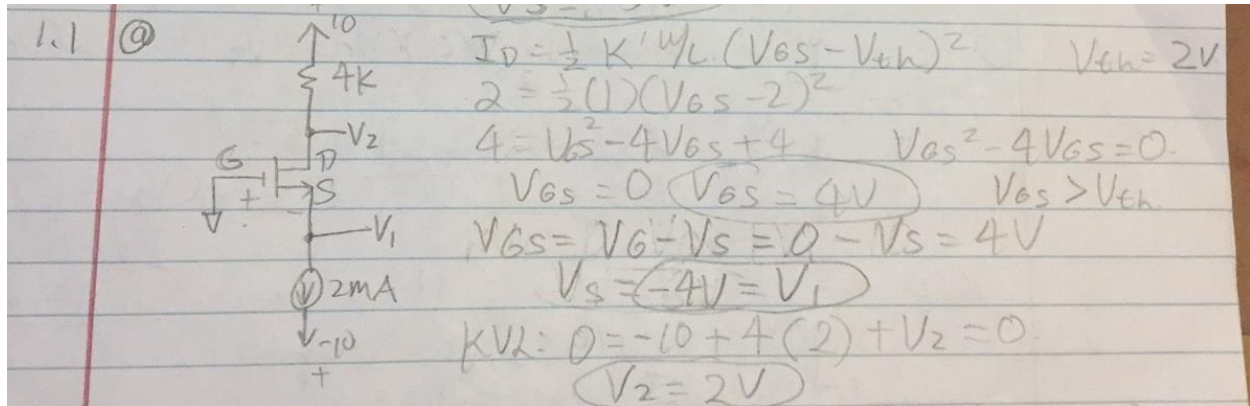 1.1 ⓐ
10
4K
V2
G
D
S
+
V1
2mA
-10
+
I_D = ½ K' W/L (VGS - Vth)² Vth = 2V
2 = ½(1)(VGS - 2)²
4 = VGS² - 4VGS + 4 VGS² - 4VGS = 0.
VGS = 0 VGS = 4V VGS > Vth
VGS = VG - VS = 0 - VS = 4V
VS = -4V = V1
KVL: 0 = -10 + 4(2) + V2 = 0.
V2 = 2V